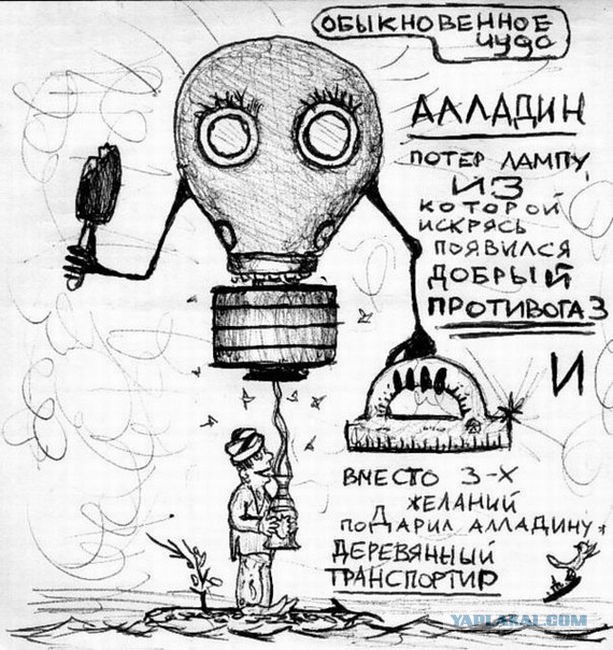 ОБЫКНОВЕННОЕ
чудо
АЛЛАДИН
ПОТЕР ЛАМПУ,
ИЗ
КОТОРОЙ
ИСКРЯСЬ
ПОЯВИЛСЯ
ДОБРЫЙ
ПРОТИВОГАЗ
И
ВМЕСТО 3-Х
ЖЕЛАНИЙ
ПОДАРИЛ АЛЛАДИНУ
ДЕРЕВЯННЫЙ
ТРАНСПОРТИР
YAPLAKAL.COM